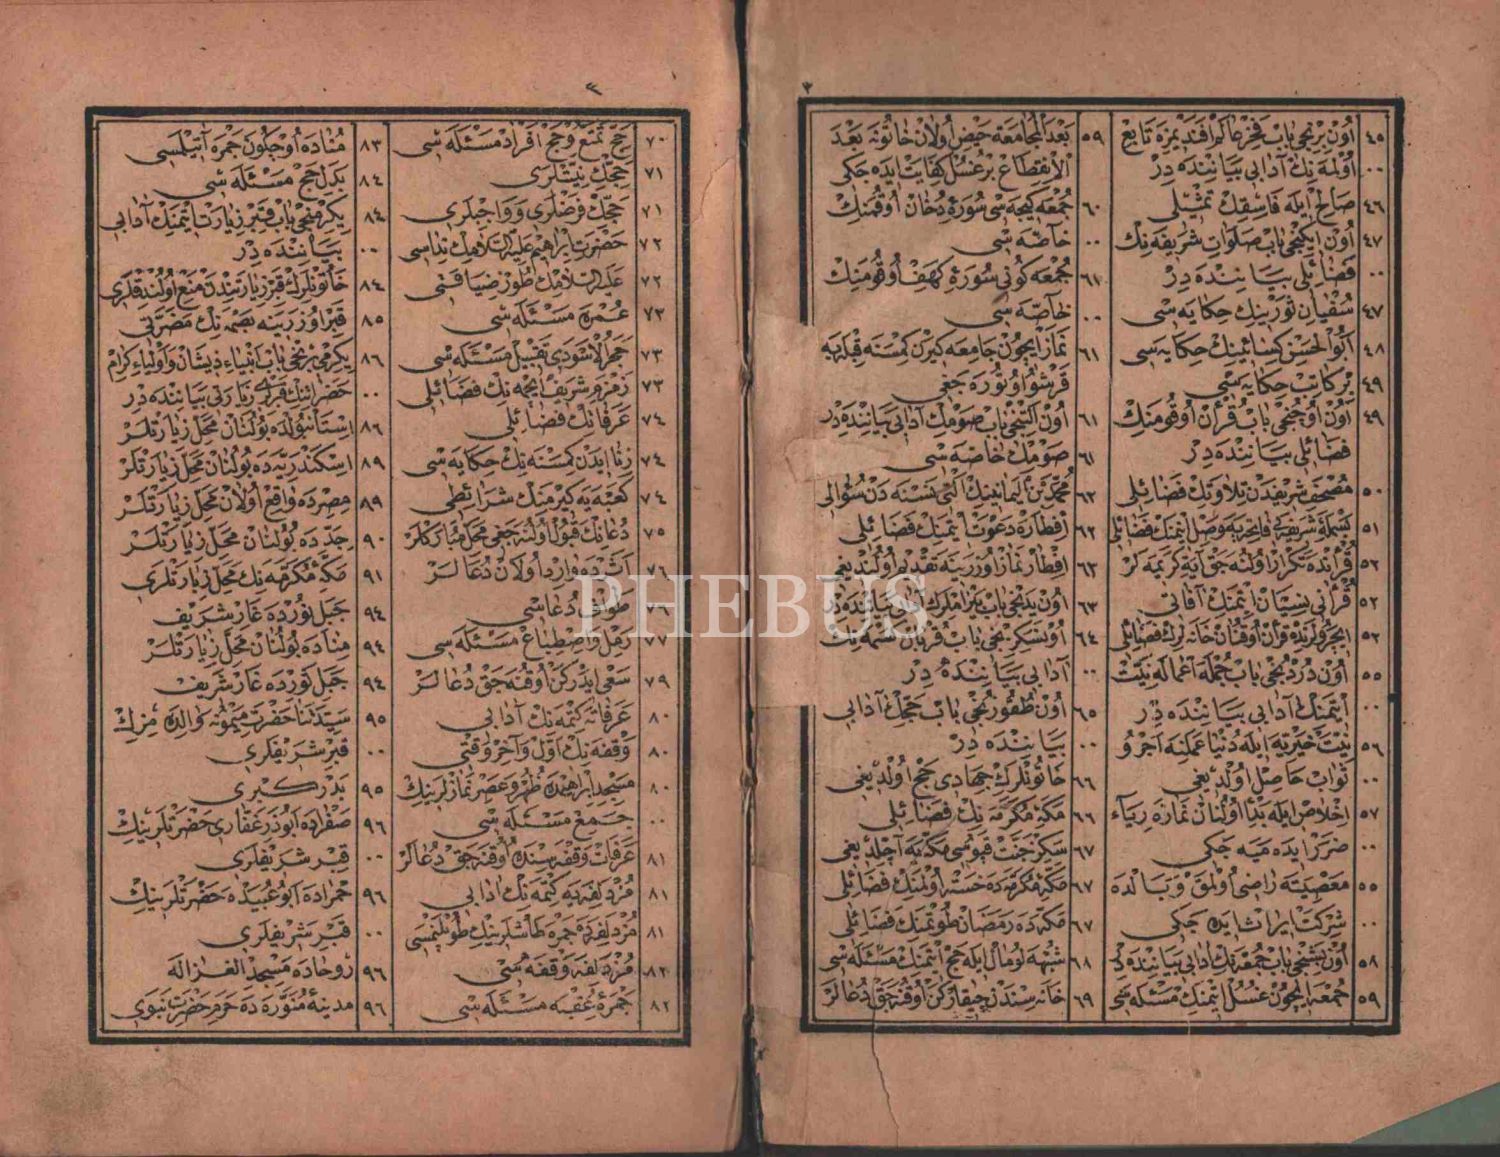 ٣
٤٥ اون برنجى باب فخر عالم افنديمزه تابع
٠٠ اولمه نك آدابى بياننده در
٤٦ صالح ايله فاسقك تمثيلى
٤٧ اون ايكنجى باب صلوات شريفه نك
٠٠ فضائلى بياننده در
٤٧ سفيان ثورينك حكايه سى
٤٨ ابو الحسن كسائينك حكايه سى
٤٩ بر كاتب حكايه سى
٤٩ اون اوچنجى باب قرآن اوقومنك
فضائلى بياننده در
٥٠ مصحف شريفدن تلاوتك فضائلى
٥١ بسملۀ شريفه فى فاتحه يه وصل ايتمنك فضائلى
٥٢ قرآنده تكرار اولنه جق آية كريمه لر
٥٢ قرآنى نسيان ايتمنك آفاتى
٥٣ ايچرولرنده قرآن اوقنان خانه لرك فضائلى
٥٥ اون دردنجى باب جمله اعماله نيت
٠٠ ايتمنك آدابى بياننده در
٥٦ نيت خيريه ايله دنيا عملنه اجر و
٠٠ ثواب حاصل اولديغى
٥٧ اخلاص ايله بدأ اولنان نمازه رياء
٠٠ ضرر ايده ميه جكى
٥٥ معصيته راضى اولمق و بالده
٠٠ شركت ايراث ايده جكى
٥٨ اون بشنجى باب جمعه نك ادابى بياننده در
٥٩ جمعه ايچون غسل ايتمنك مسئله سى
٥٩ بعد المجامعة حيض اولان خاتونه بعد
الانقطاع بر غسل كفايت ايده جكى
٦٠ جمعه كيجه سى سورۀ دخان اوقمنك
٠٠ خاصه سى
٦١ جمعه كونى سورۀ كهف اوقومنك
٠٠ خاصه سى
٦١ نماز ايچون جامعه كيرن كمسنه قبله يه
قرشو اوتوره جغى
٦١ اون التنجى باب صومك آدابى بياننده در
٦١ صومك خاصه سى
٦٢ محمد بن اليمانينك التى نسنه دن سؤالى
٦٢ افطاره دعوت ايتمنك فضائلى
٦٣ افطار نماز اوزرينه تقديم اولنديغى
٦٣ اون يدنجى باب بيراملرك آدابى بياننده در
٦٤ اون سكزنجى باب قربان كسمه نك
٠٠ آدابى بياننده در
٦٥ اون طقوزنجى باب حجك آدابى
٠٠ بياننده در
٦٦ خاتونلرك جهادى حج اولديغى
٦٦ مكۀ مكرمه نك فضائلى
٦٧ سكز جنت قپوسى مكه يه آچلديغى
٦٧ مكۀ مكرمه ده خسته اولمنك فضائلى
٦٧ مكه ده رمضان طوتمنك فضائلى
٦٨ شبهه لو مال ايله حج ايتمنك مسئله سى
٦٩ خانه سندن چيقاركن اوقنه جق دعالر
٤
٧٠ حج تمتع و حج افراد مسئله سى
٧١ حجك نيتلرى
٧١ حجك فرضلرى و واجبلرى
٧٢ حضرت ابراهيم عليه السلامك نداسى
٧٢ عليه السلامك طور ضيافتى
٧٣ عمره مسئله سى
٧٣ حجر الاسودى تقبيل مسئله سى
٧٣ زمزم شريف ايچمه نك فضائلى
٧٤ عرفاتك فضائلى
٧٤ زنا ايدن كمسنه نك حكايه سى
٧٤ كعبه يه كيرمنك شرائطى
٧٥ دعانك قبول اولنه جغى محل مباركلر
٧٦ اثرده وارد اولان دعالر
٧٦ طواف دعاسى
٧٧ رمل و اضطباع مسئله سى
٧٩ سعى ايدركن اوقنه جق دعالر
٨٠ عرفاته كتمه نك آدابى
٨٠ وقفه نك اول و آخر وقتى
٨٠ مسجد ابراهيمده ظهر و عصر نمازلرينك
٠٠ جمع مسئله سى
٨١ عرفات وقفه سنده اوقنه جق دعالر
٨١ مزدلفه يه كتمه نك ادابى
٨١ مزدلفه ده جمره طاشلرينك طوپلنمسى
٨٢ مزدلفه وقفه سى
٨٢ جمرۀ عقبه مسئله سى
٨٣ مناده اوچ كون جمره آتيلمسى
٨٤ بدل حج مسئله سى
٨٤ يكرمنجى باب قبر زيارت ايتمنك آدابى
٠٠ بياننده در
٨٤ خاتونلرك قبر زيارتندن منع اولندقلرى
٨٥ قبر اوزرينه بصمه نك مضرتى
٨٦ يكرمى برنجى باب انبياء ذيشان و اولياء كرام
٠٠ حضراتنك قبرلرى زيارتى بياننده در
٨٦ استانبولده بولنان محل زيارتلر
٨٩ اسكندريه ده بولنان محل زيارتلر
٨٩ مصرده واقع اولان محل زيارتلر
٩٠ جدده بولنان محل زيارتلر
٩١ مكۀ مكرمه نك محل زيارتلرى
٩٤ جبل نورده غار شريف
٩٤ مناده بولنان محل زيارتلر
٩٤ جبل ثورده غار شريف
٩٥ سيدتنا حضرت ميمونه والده مزك
٠٠ قبر شريفلرى
٩٥ بدر كبرى
٩٦ صفراده ابوذر غفارى حضرتلرينك
٠٠ قبر شريفلرى
٩٦ حمراده ابو عبيده حضرتلرينك
٠٠ قبر شريفلرى
٩٦ روحاده مسجد الغزاله
٩٦ مدينۀ منوره ده حرم حضرت نبوى
PHEBUS